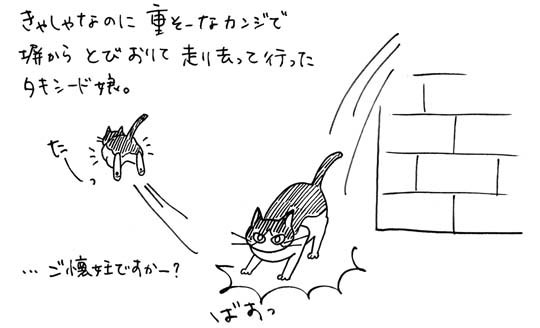 きゃしゃなのに 重そーなカンジで
塀から とびおりて 走り去って行った
タキシード娘。
たーっ
… ご懐妊ですかー?
ばおっ